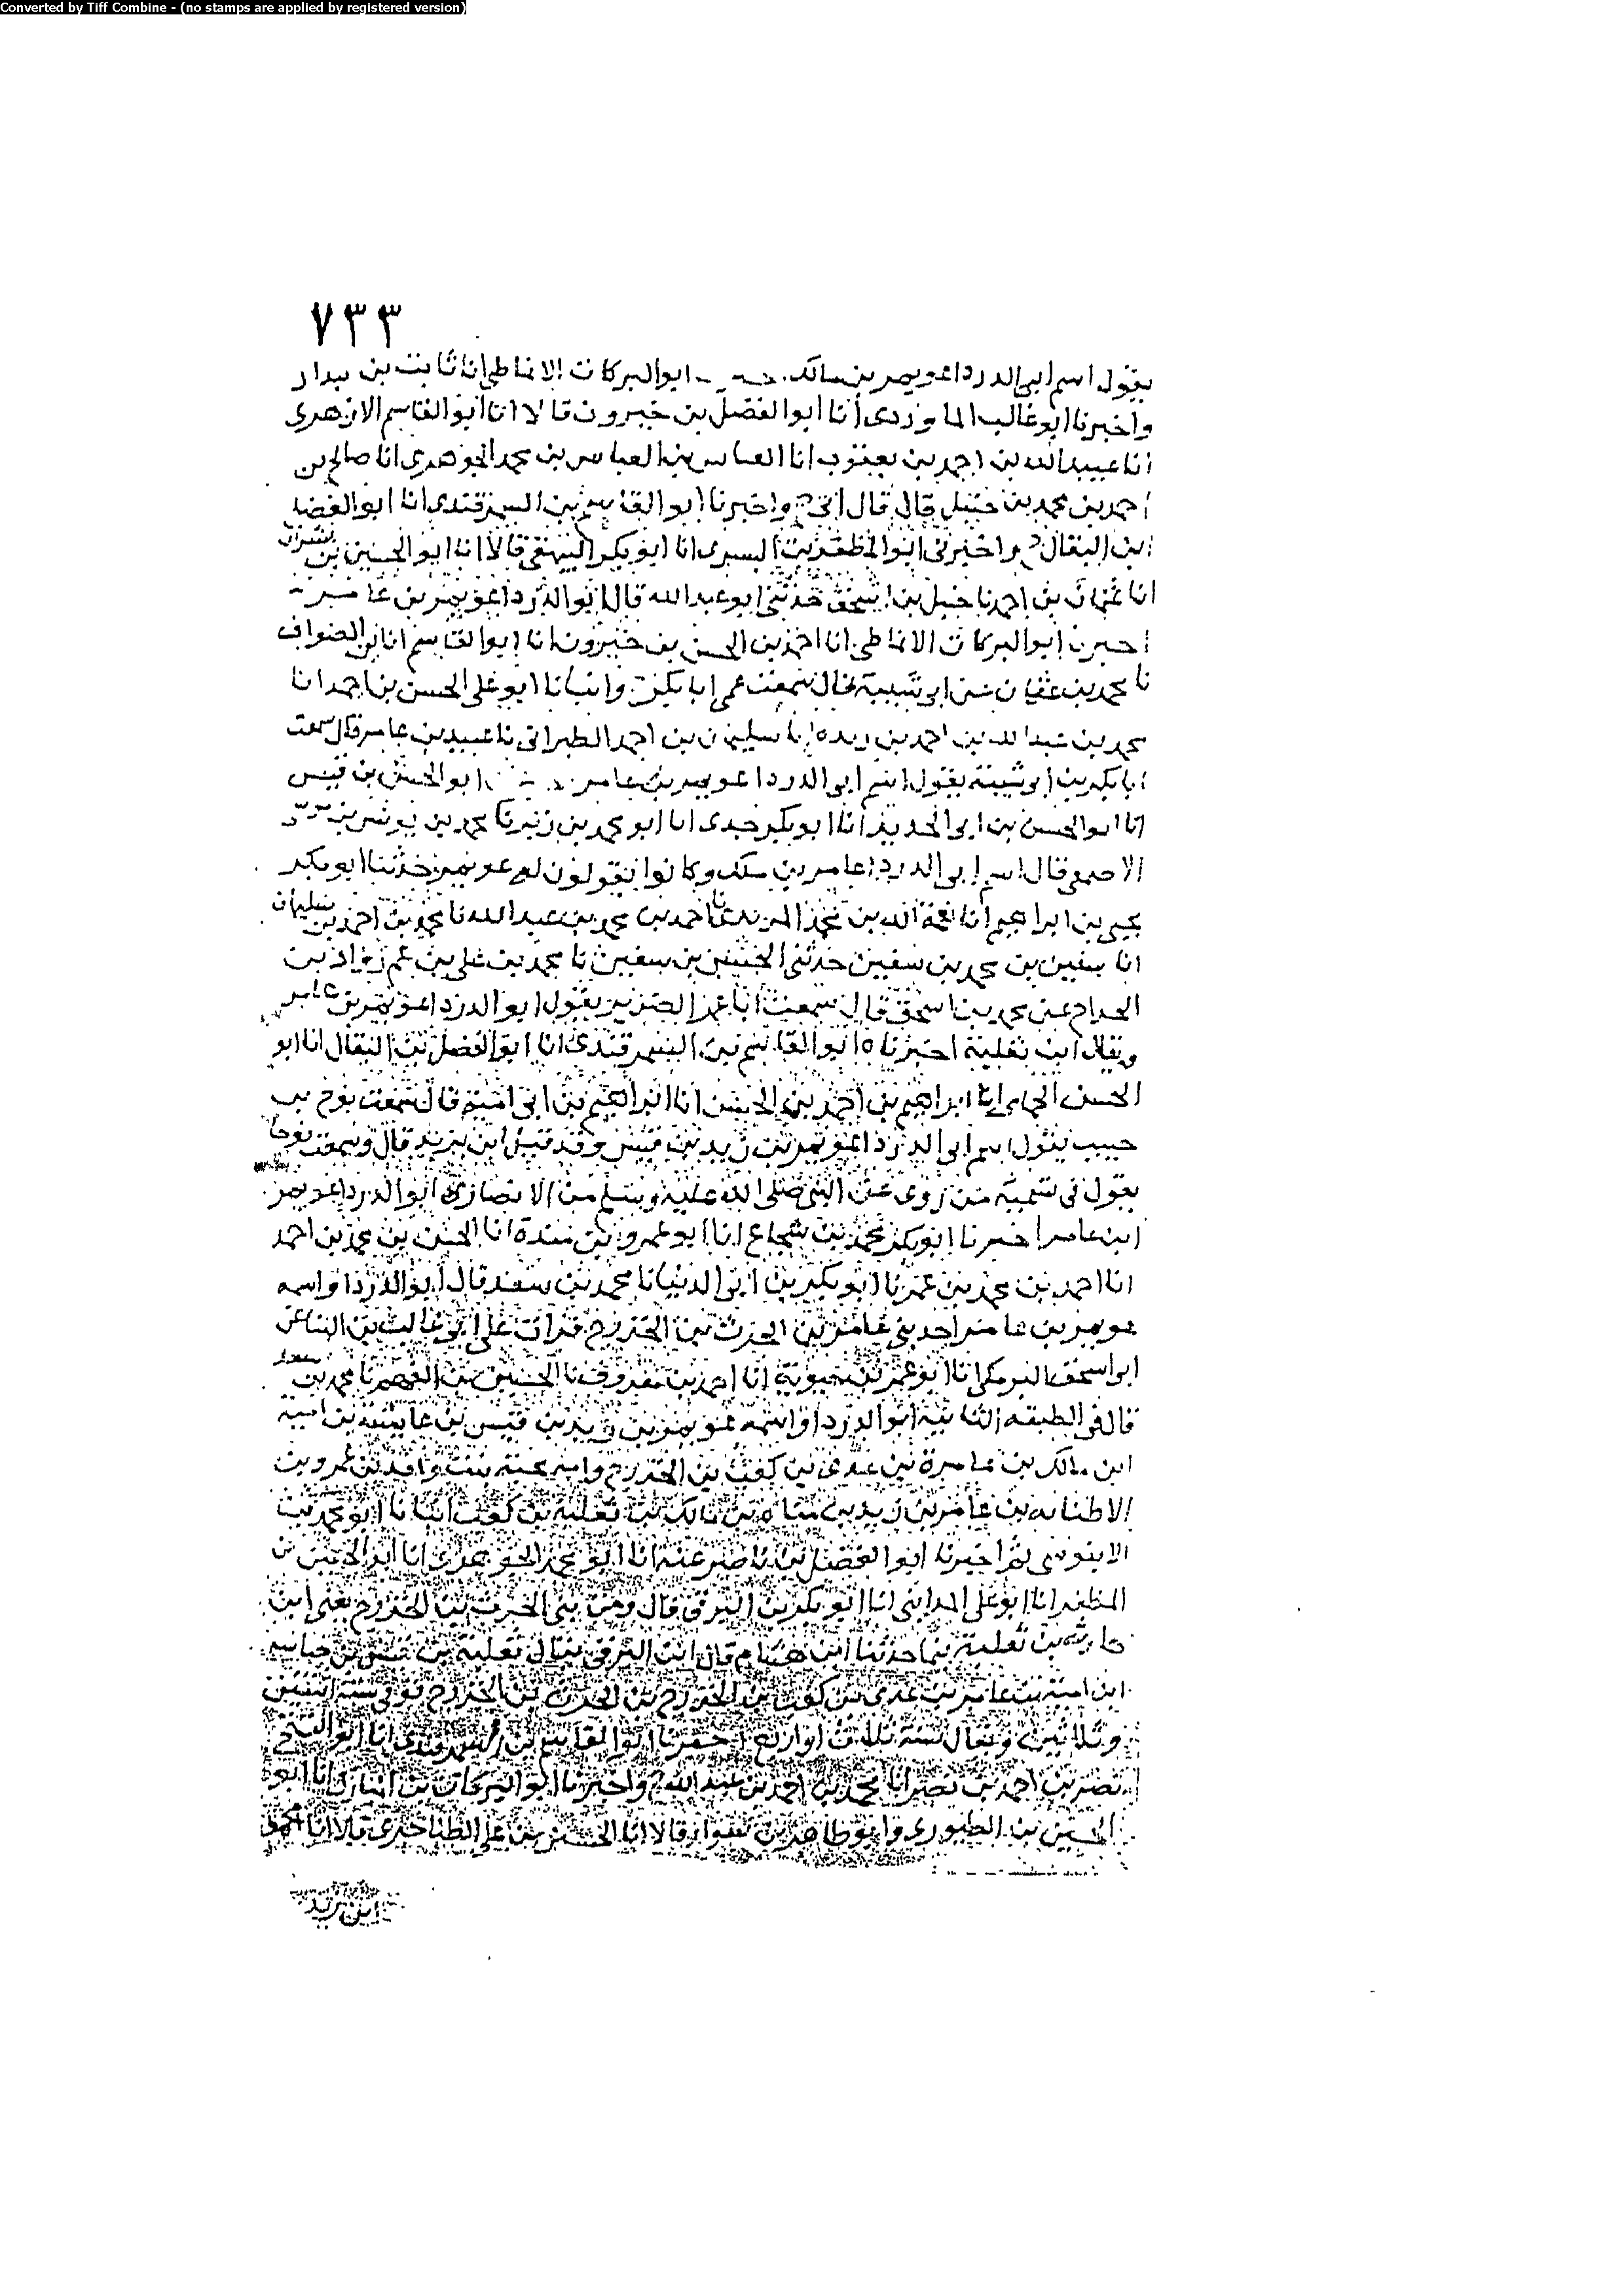 Converted by Tiff Combine - (no stamps are applied by registered version)
٧٣٣
يقول اسم ابي الدرداء عويمر بن مالك ابو البركات الانماطي انا ثابت بن بندار
واخبرنا ابو غالب الماوردي أنا أبو الفضل بن خيرون قالا انا ابو القاسم الازهري
أنا عبيد الله بن احمد بن يعقوب انا العباس بن العباس بن محمد الجوهري انا صالح بن
احمد بن محمد بن حنبل قال قال ابي ح واخبرنا ابو القاسم بن السمرقندي انا ابو الفضل
ابن البقال ح واخبرني ابو المظفر بن البسري انا ابو بكر البيهقي قالا انا ابو الحسين بن بشران
انا عثمان بن احمد نا حنبل بن اسحق حدثني ابو عبد الله قال ابو الدرداء عويمر بن عامر
اخبرنا ابو البركات الانماطي انا احمد بن الحسن بن خيرون انا ابو القاسم انا بن الصواف
نا محمد بن عثمان بن ابي شيبة قال سمعت عمي ابا بكر ح وانبانا ابو علي الحسن بن احمد انا
محمد بن عبد الله بن احمد بن ريذه انا سليمن بن احمد الطبراني نا عبيد بن عامر قال سمعت
ابا بكر بن ابي شيبة يقول اسم ابي الدرداء عويمر بن عامر ابو الحسن بن قبيس
انا ابو الحسن بن ابي الحديد انا ابو بكر جدي انا ابو محمد بن زبر نا محمد بن يونس بن
الاصمعي قال اسم ابي الدرداء عامر بن ملك وكانوا يقولون له عويمر حدثنا ابو بكر
يحيى بن ابراهيم أنا نعمة الله بن محمد المرندي نا احمد بن محمد بن عبد الله نا محمد بن احمد بن سليمان
انا سفين بن محمد بن سفين حدثني الحسين بن سفين نا محمد بن علي بن عم رواد بن
الجراح عن محمد بن اسحق قال سمعت ابا عمر الضرير يقول ابو الدرداء عويمر بن عامر
ويقال ابن ثعلبة اخبرناه ابو القاسم بن السمرقندي انا ابو الفضل بن البقال انا ابو
الحسن الحمامي انا ابراهيم بن احمد بن الحسن أنا ابراهيم بن ابي امية قال سمعت نوح بن
حبيب يقول اسم ابي الدرداء عويمر بن زيد بن قيس وقد قيل ابن يزيد قال وسمعت نوحا
يقول في تسمية من روى عن النبي صلى الله عليه وسلم من الانصار ابو الدرداء عويمر
ابن عامر اخبرنا ابو بكر محمد بن شجاع انا ابو عمرو بن مندة انا الحسن بن محمد بن احمد
انا احمد بن محمد بن عمر نا ابو بكر بن ابي الدنيا نا محمد بن سعد قال ابو الدرداء واسمه
عويمر بن عامر احد بني عامر بن الحرث بن الخزرج قرات على ابي غالب بن البنا عن
ابي اسحق البرمكي انا ابو عمر بن حيوية انا احمد بن معروف نا الحسين بن الفهم نا محمد بن سعد
قال في الطبقه الثانية ابو الدرداء واسمه عويمر بن زيد بن قيس بن عايشة بن امية
ابن مالك بن عامرة بن عدي بن كعب بن الخزرج وامه محبة بنت واقد بن عمرو بن
الاطنابه بن عامر بن زيد مناة بن مالك بن ثعلبة بن كعب انبانا ابو محمد بن
الابنوسي ثم اخبرنا ابو الفضل بن ناصر عنه انا ابو محمد الجوهري انا ابو الحسين بن
المظفر انا ابو علي المدايني انا ابو بكر بن البرقي قال ومن بني الحرث بن الخزرج يعني ابن
حارثة بن ثعلبة فيما حدثنا ابن هشام قال ابن البرقي يقال ثعلبة بن
ابن امية بن عامر بن عدي بن كعب بن الخزرج بن الحرث بن الخزرج توفي سنة اثنتين
وثلاثين ويقال سنة ثلاث او اربع اخبرنا ابو القاسم بن السمرقندي انا ابو الفتح
نصر بن احمد بن نصر انا محمد بن احمد بن عبد الله ح واخبرنا ابو البركات بن المبارك انا ابو
الحسين بن الطيوري وابو طاهر بن سوار قالا انا الحسين بن علي الطناجيري قالا انا محمد
ابن زيد